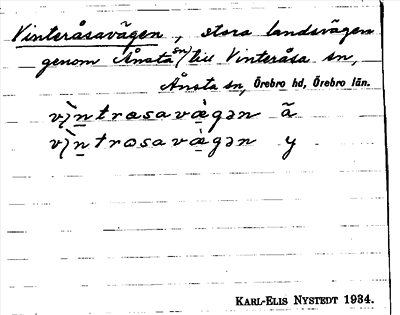 Vinteråsavägen, stora landsvägen
genom Ånsta sn / till Vinteråsa sn,
Ånsta sn, Örebro hd, Örebro län.
ã
y
KARL-ELIS NYSTEDT 1934.